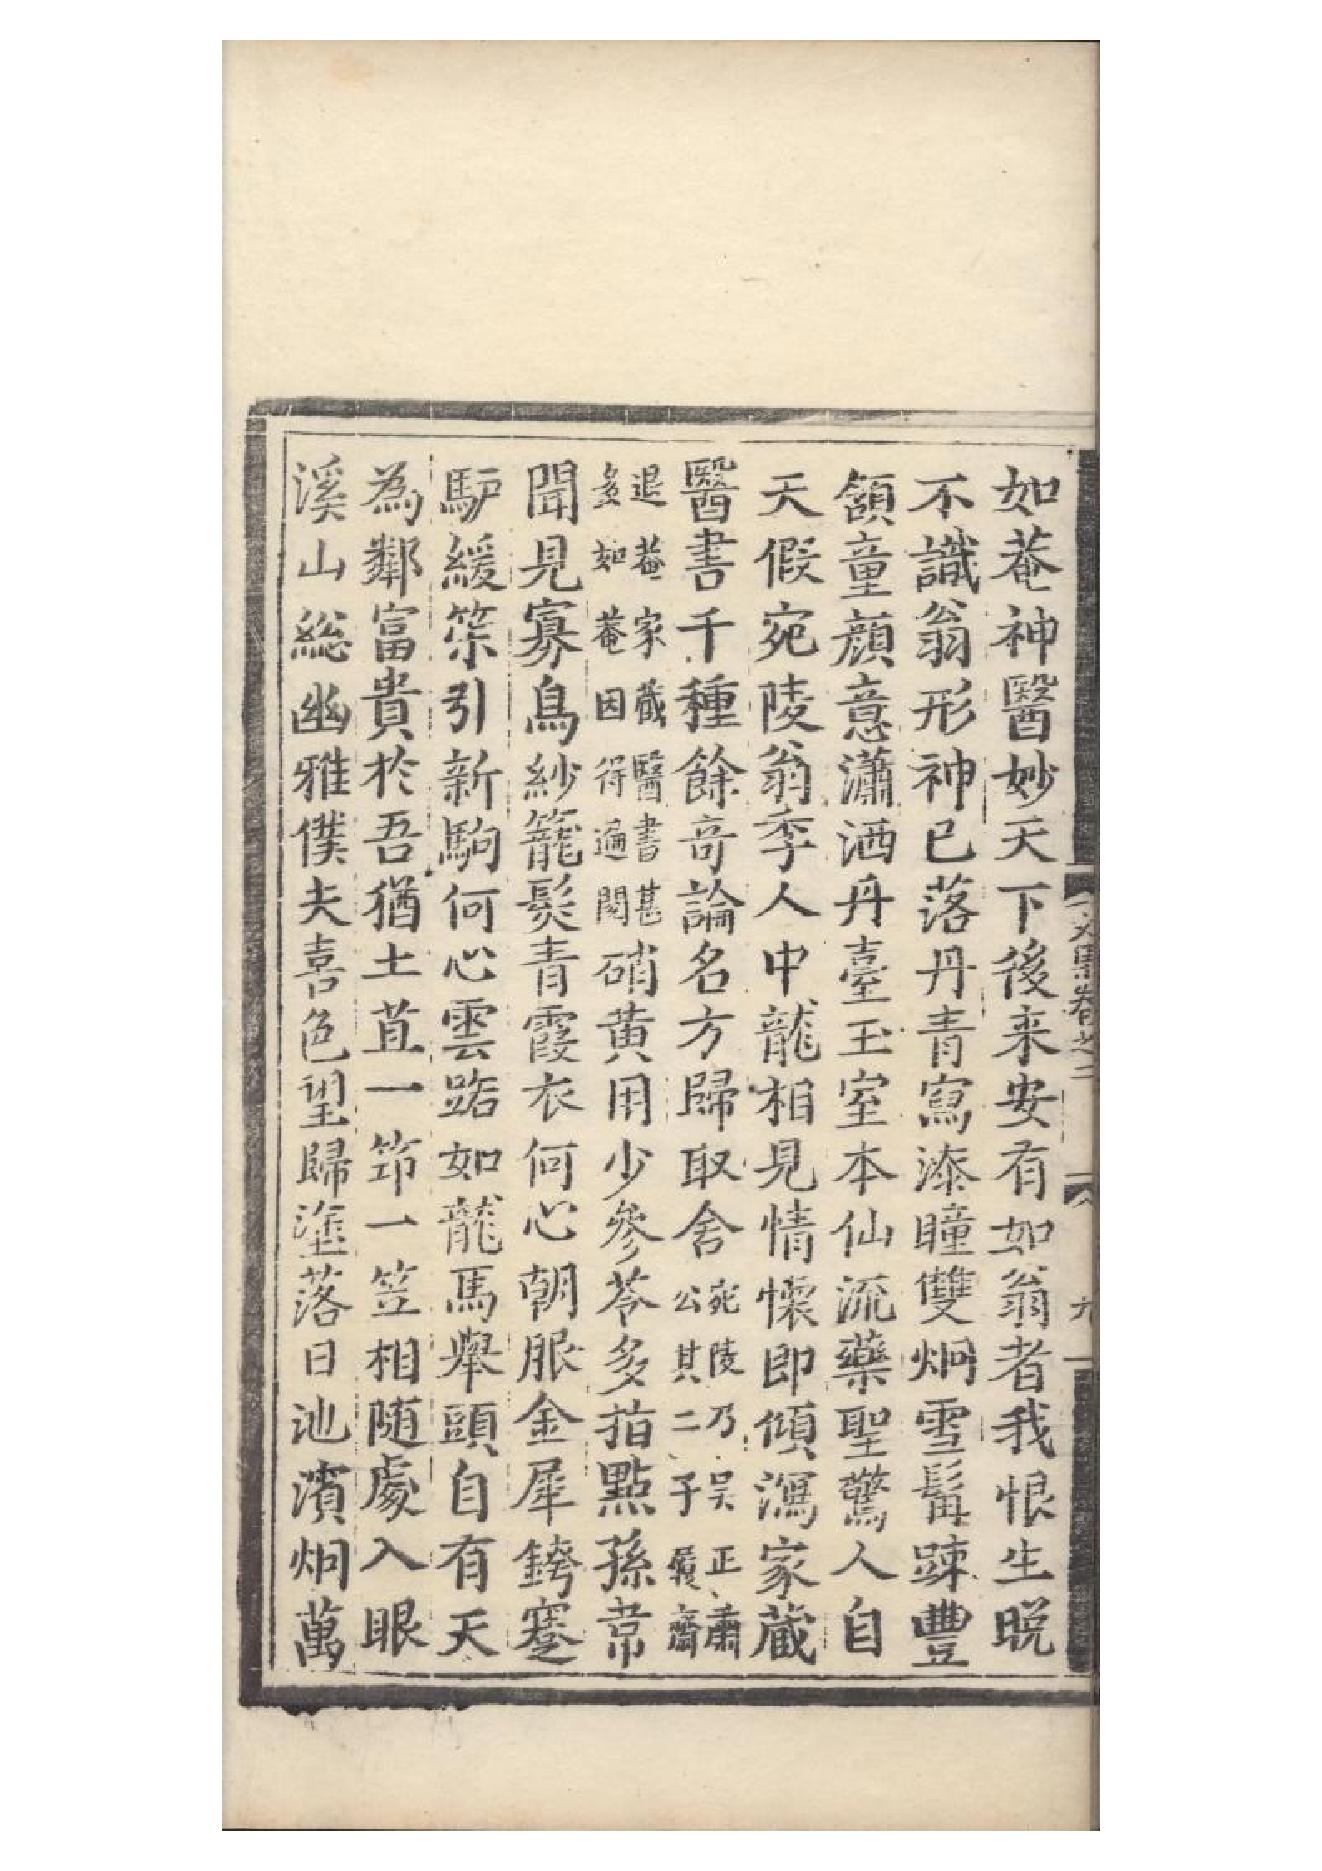 如菴神醫妙天下後来安有如翁者我恨生晚
不識翁形神已落丹青寫漆瞳雙炯雪髯踈豐
頷童顔意瀟洒丹臺玉室本仙流藥聖驚人自
天假宛陵翁季人中龍相見情懷即傾瀉家蔵
醫書千種餘竒論名方歸取舍宛陵乃吴正肅
公其二子履齋
退菴家蔵醫書甚
多如菴因得遍閲硝黄用少參苓多指點孫韋
聞見寡烏紗籠髪青霞衣何心朝服金犀銙蹇
馿緩策引新駒何心雲路如龍馬舉頭自有天
為鄰富貴於吾猶土苴一笻一笠相随處入眼
溪山総幽雅僕夫喜色望歸塗落日池濱炯萬
卷之二
九